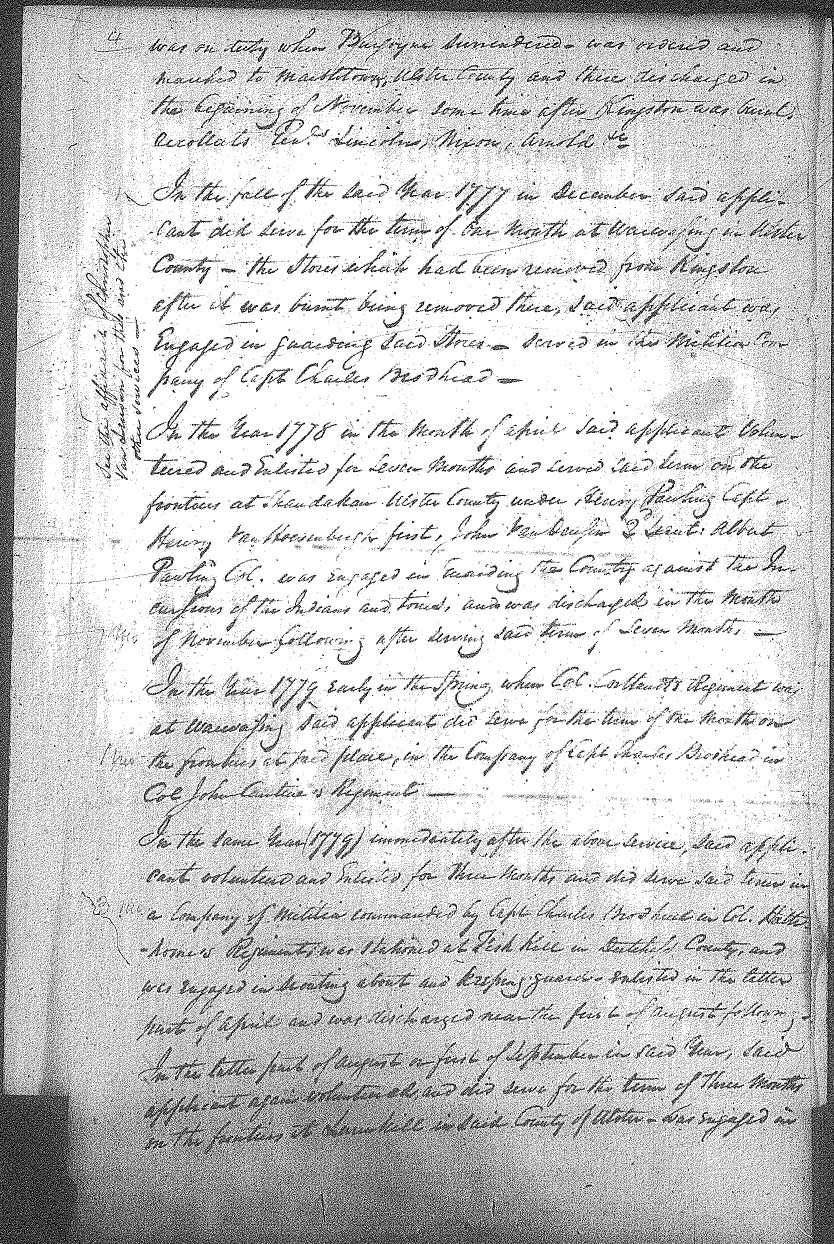 4
was on duty when Burgoyne Surrendered – was ordered and
marched to Marbletown, Ulster County and there discharged in
the begining of November some time after Kingston was burnt,
recollects Genls Lincoln, Nixon, Arnold &c
In the fall of the said Year 1777 in December said appli-
-cant did serve for the term of One Month at Wawasing in Ulster
County – the Stores which had been removed from Kingston
after it was burnt being removed there, said applicant was
Engaged in guarding said Stores – served in the Militia Com
pany of Capt Charles Brodhead –
See the affidavit of Christopher
Van Deusen for this and the
other services –
In the Year 1778 in the Month of April said applicant Volun-
teered and Enlisted for Seven Months and served said term on the
frontiers at Shandakan Ulster County under Henry Pawling Capt –
Henry Van Hoevenbergh first, John Van Deusen 2d Lieut: Albert
Pawling Col. was engaged in Guarding the County against the In-
cursions of the Indians and tories, and was discharged in the Month
of November following after serving said term of Seven Months. –
7 Mos
In the Year 1779 early in the Spring, when Col. Cortlandts Regiment was
at Wawasing said applicant did serve for the term of One Month on
the frontiers at said place, in the Company of Capt Charles Brodhead in
Col John Cantine's Regiment –
1 Mo
In the same Year (1779) immediately after the above service, said appli-
cant volunteered and Enlisted for three Months and did serve said term in
a Company of Militia commanded by Capt Charles Brodhead in Col. Hath
-horne's Regiment, was Stationed at Fish Kill in Dutchess County, and
was engaged in Scouting about and keeping guard – Enlisted in the latter
part of April and was discharged near the first of August following –
3
In the latter part of August or first of September in said Year, said
applicant again volunteered, and did serve for the term of three Months
on the frontiers at Lurenkill in said County of Ulster – was engaged in